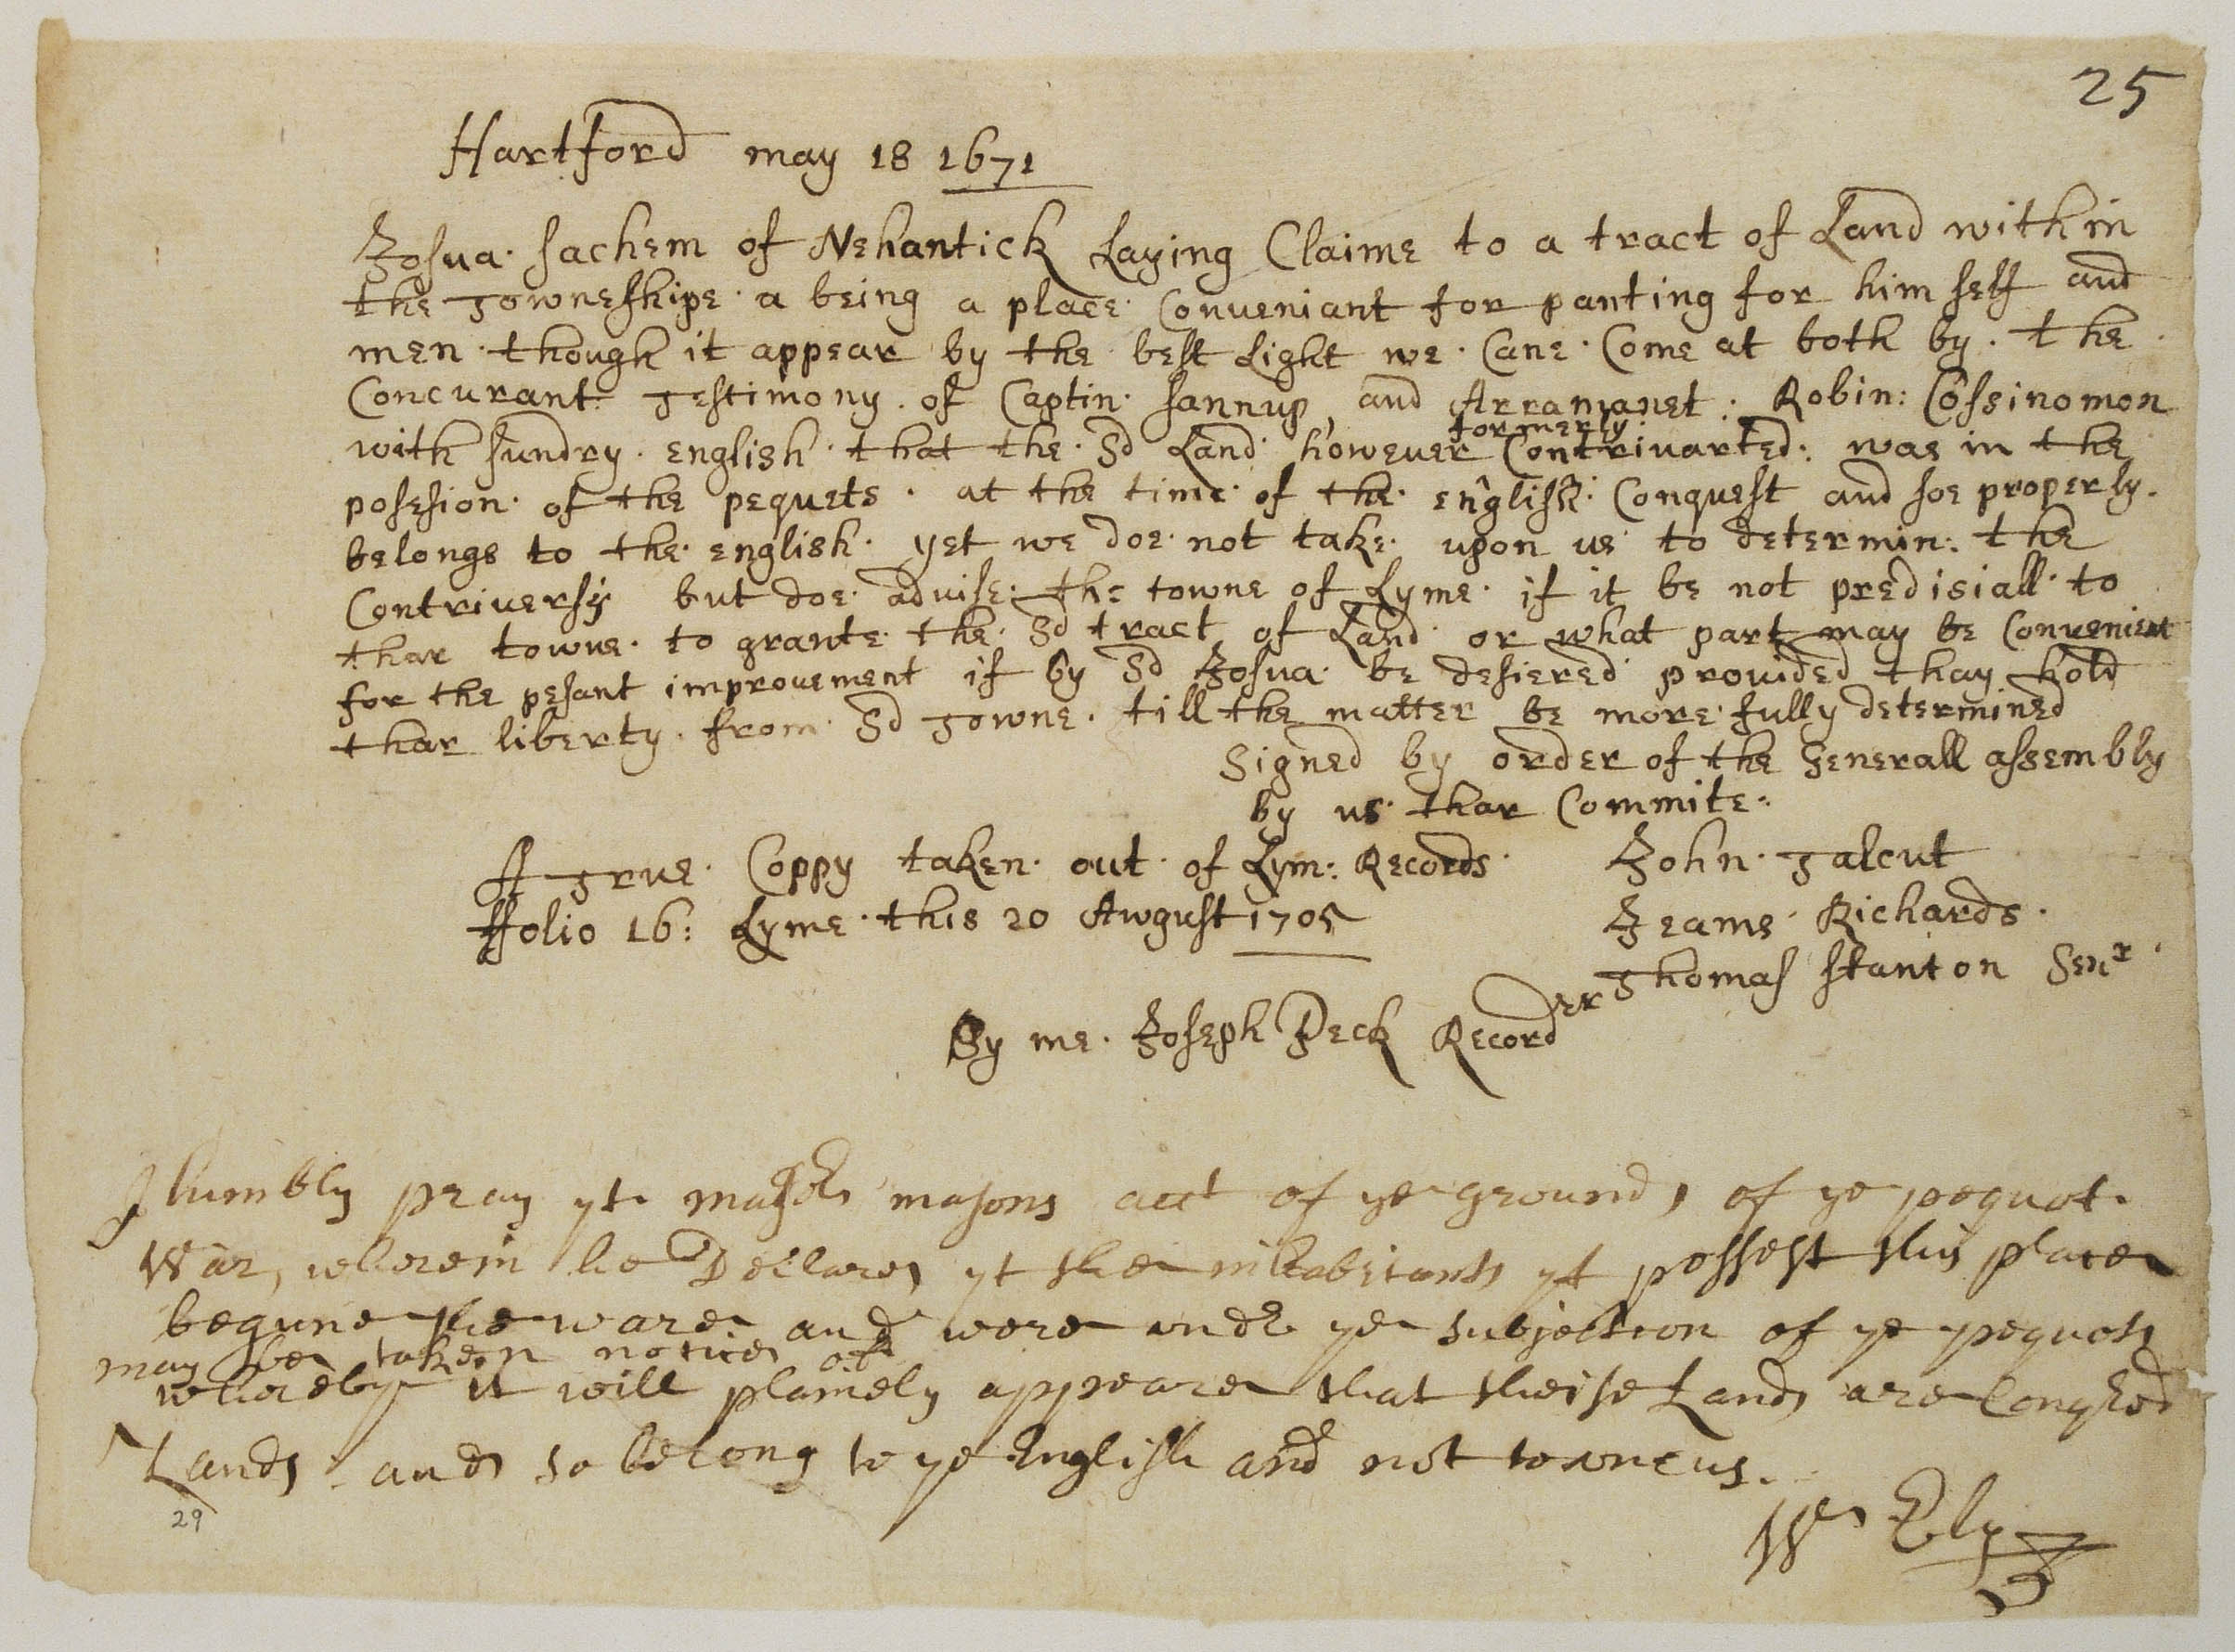 25
Hartford may 18 1671
Josua. sachem of Nehantick Laying Claime to a tract of Land within
the Towneshipe. a being a place. Conveniant for panting for him self and
men. though it appear by the best Light we. Cane. Come at both by. the
Concurant. Testimony. of Captin. sannup, and Arramanet: Robin: Cossinomon
formerly
with sundry. english. that the. Sd Land. however Contrivarted: was in the
posesion. of the pequets. at the time. of the. english. Conquest and soe properly.
belongs to the. english. yet we doe. not take. upon us to determin: the
Contriversy but doe. advise. the towne of Lyme. if it be not predisiall. to
thar towne. to grante. the. Sd tract of Land. or what part may be Convenient
for the pesant improvement if by Sd Josua. be desiered provided thay hold
thar liberty. from. Sd Towne. till the matter be more. fully determined
Signed by order of the Generall assembly
by us. thar Commite:
A True. Coppy taken. out. of Lym: Records.
ffolio 16: Lyme. this 20 Awgust 1705
John. Talcut
Jeams. Richards.
Thomas stanton Senr.
By me. Joseph Peck Recorder
I humbly pray yt majr masons acct of ye grounds of ye pequot
War, wherein he Declares yt the inhabitants yt possest this place
begune the ware and were undr ye subjection of ye pequots
may be taken notice of
whereby it will plainely appeare that theise Lands are Conqred
Lands and so belong to ye English and not to oncus.
Wm Ely
29